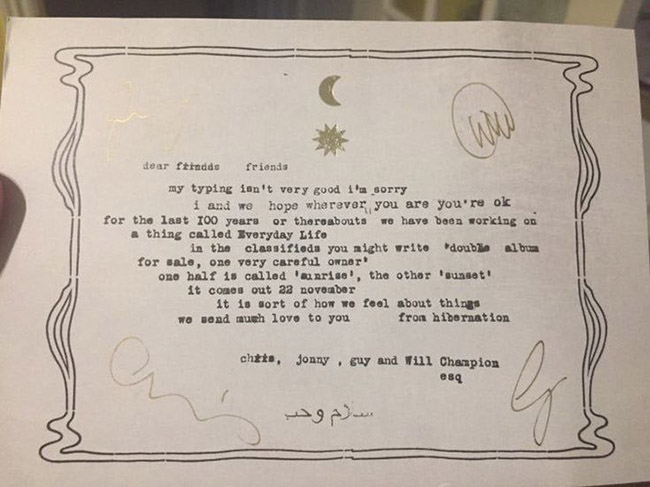 dear friends friends
my typing isn't very good i'm sorry
i and we hope wherever you are you're ok
for the last I00 years or thereabouts we have been working on
a thing called Everyday Life
in the classifieds you might write "double album
for sale, one very careful owner"
one half is called 'sunrise', the other 'sunset'
it comes out 22 november
it is sort of how we feel about things
we send much love to you from hibernation
chris, jonny , guy and Will Champion
esq
Chris
سلام وحب